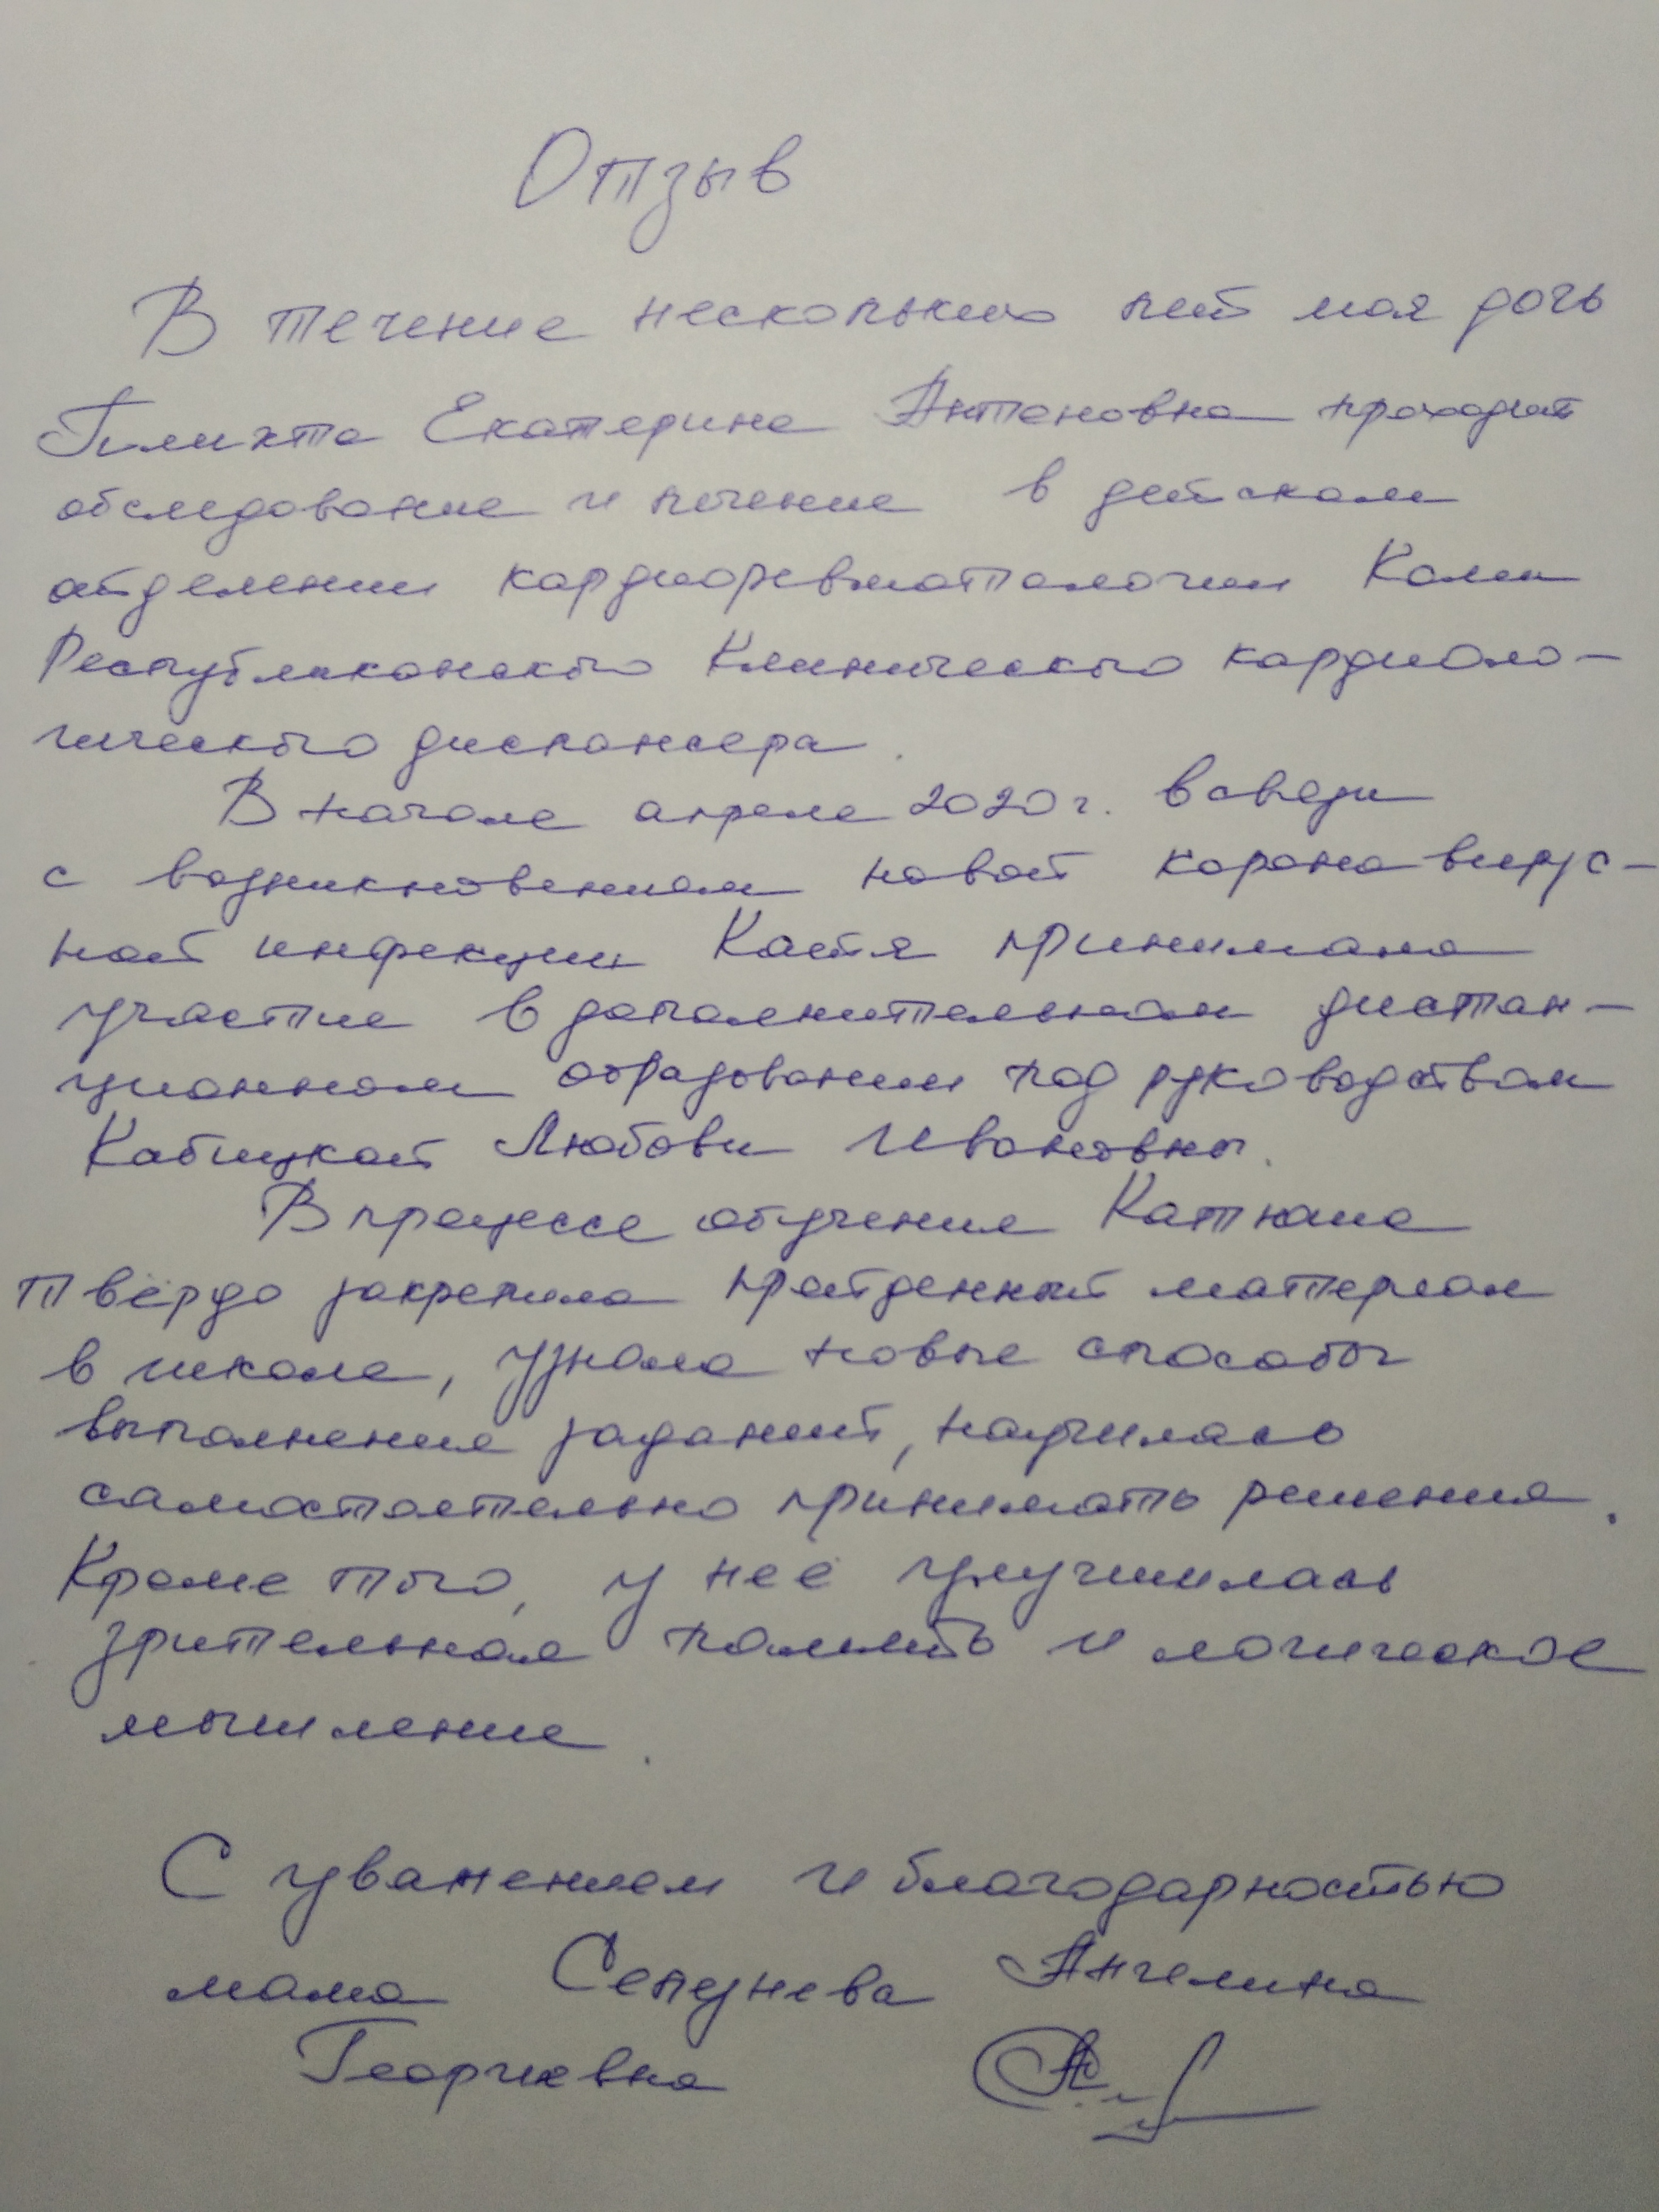 Отзыв
В течение нескольких лет моя дочь
Екатерина Антоновна проходит
обследование и лечение в детском
отделении кардиоревматологии Коми
Республиканского Клинического кардиоло-
гического диспансера.
В начале апреля 2020 г. в связи
с возникновением новой корона вирус-
ной инфекции Катя принимала
участие в дополнительном дистан-
ционном образовании под руководством
Кабицкой Любови Ивановны.
В процессе обучения Катюша
твёрдо закрепила пройденный материал
в школе, узнала новые способы
выполнения заданий, научилась
самостоятельно принимать решения.
Кроме того, у неё улучшилась
зрительная память и логическое
мышление.
С уважением и благодарностью
мама Ангелина
Георгиевна